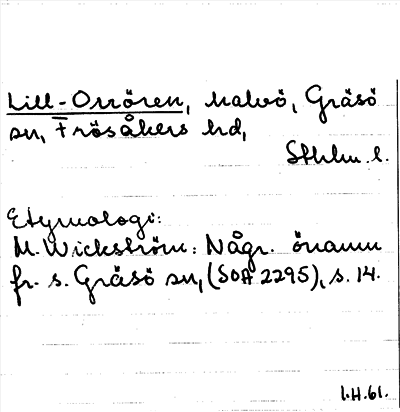 Lill-Orrören, Kalvö, Gräsö
sn, Frösåkers hd,
Sthlm. l.
Etymologi:
M. Wickström: Någr. önamn
fr. s. Gräsö sn, (SOA 2295), s. 14.
I.H.61.